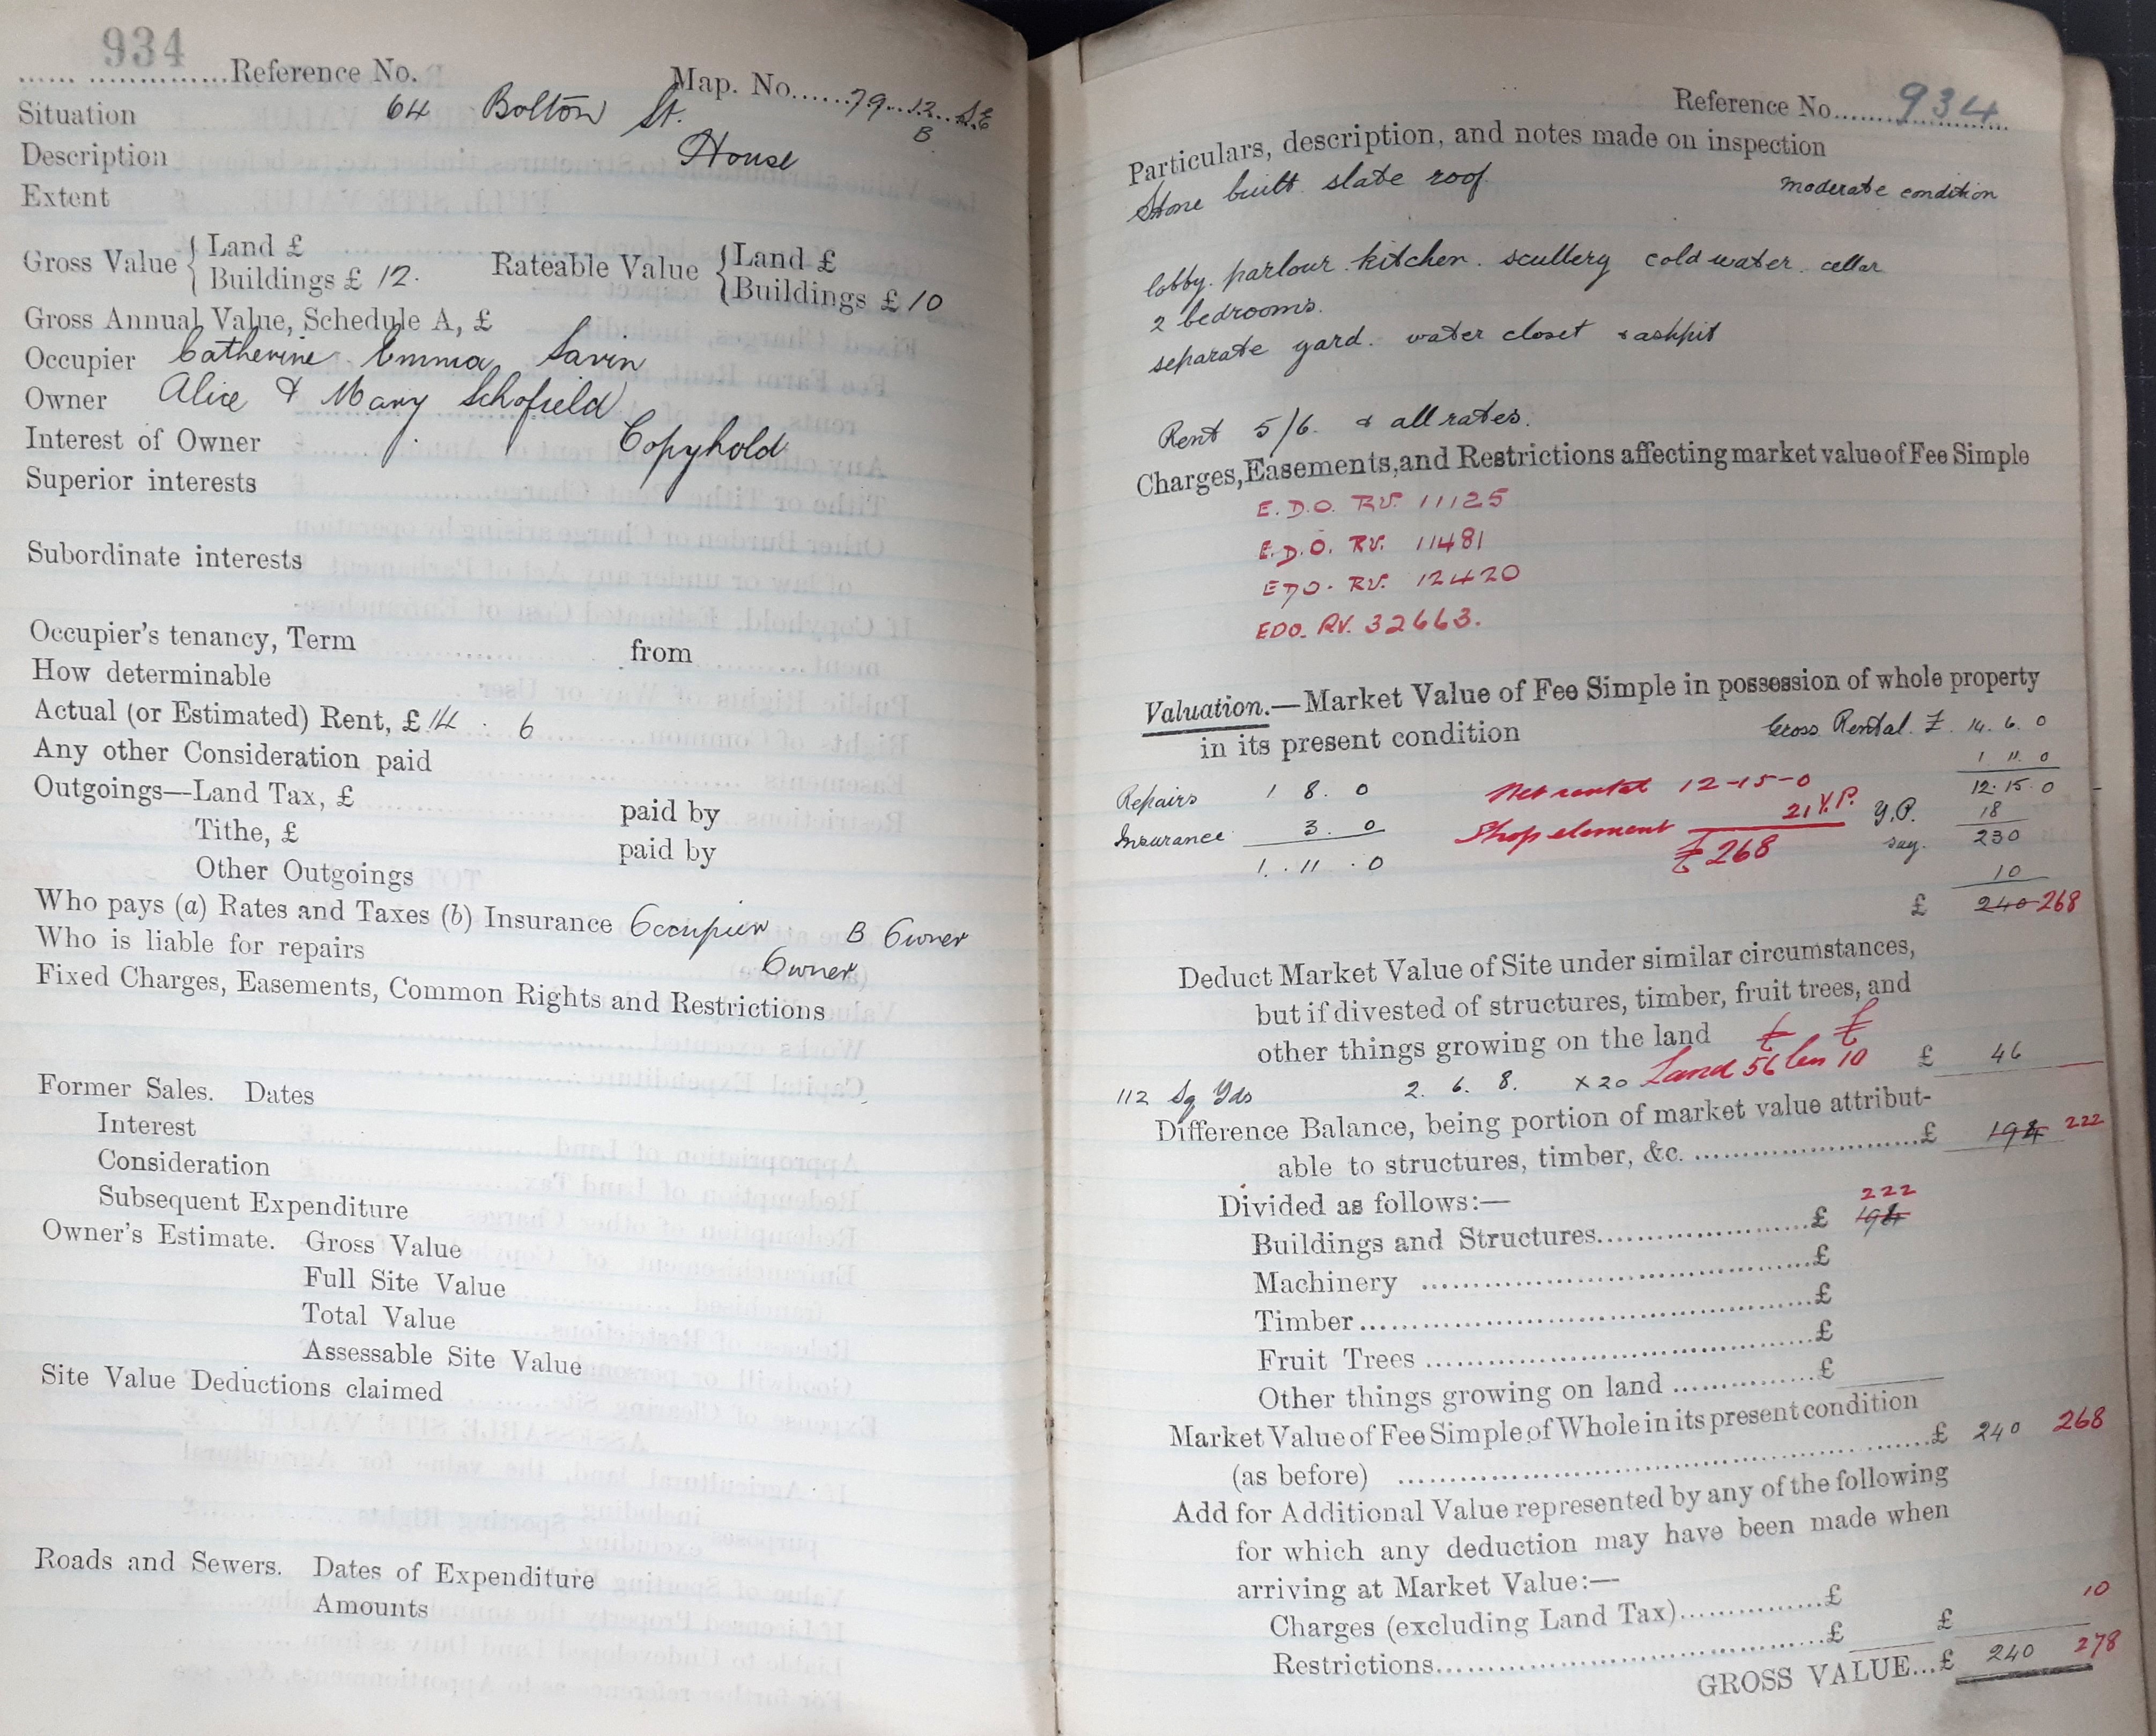 934
Reference No. Map. No. 79 12 S.E
B
Situation 64 Bolton St.
Description House
Extent
Gross Value { Land £
Buildings £ 12. Rateable Value { Land £
Buildings £ 10
Gross Annual Value, Schedule A, £
Occupier Catherine Emma Savin
Owner Alice & Mary Schofield
Interest of Owner Copyhold
Superior interests
Subordinate interests
Occupier's tenancy, Term from
How determinable
Actual (or Estimated) Rent, £ 14 . 6
Any other Consideration paid
Outgoings—Land Tax, £ paid by
Tithe, £ paid by
Other Outgoings
Who pays (a) Rates and Taxes (b) Insurance Occupier B Owner
Who is liable for repairs Owner
Fixed Charges, Easements, Common Rights and Restrictions
Former Sales. Dates
Interest
Consideration
Subsequent Expenditure
Owner's Estimate. Gross Value
Full Site Value
Total Value
Assessable Site Value
Site Value Deductions claimed
Roads and Sewers. Dates of Expenditure
Amounts
Reference No. 934
Particulars, description, and notes made on inspection
Stone built slate roof moderate condition
lobby. parlour. kitchen. scullery cold water. cellar
2 bedrooms.
separate yard. water closet & ashpit
Rent 5/6. & all rates.
Charges, Easements, and Restrictions affecting market value of Fee Simple
E.D.O. RV. 11125
E.D.O. RV. 11481
EDO. RV. 12420
EDO. RV. 32663.
Valuation.—Market Value of Fee Simple in possession of whole property
in its present condition Gross Rental £ 14. 6. 0
1 11. 0
Repairs 1 8. 0 Net rental 12-15-0 12. 15. 0
21 Y.P. Y.P. 18
Insurance 3. 0 Shop element £268 say. 230
1. . 11 . 0 10
£ 240 268
Deduct Market Value of Site under similar circumstances,
but if divested of structures, timber, fruit trees, and
other things growing on the land £ £
112 Sq Yds 2. 6. 8. × 20 Land 56 less 10 £ 46
Difference Balance, being portion of market value attribut-
able to structures, timber, &c. £ 194 222
Divided as follows:— 222
Buildings and Structures £ 194
Machinery £
Timber £
Fruit Trees £
Other things growing on land £
Market Value of Fee Simple of Whole in its present condition
(as before) £ 240 268
Add for Additional Value represented by any of the following
for which any deduction may have been made when
arriving at Market Value:—
Charges (excluding Land Tax) £ 10
Restrictions £ £
GROSS VALUE...£ 240 278